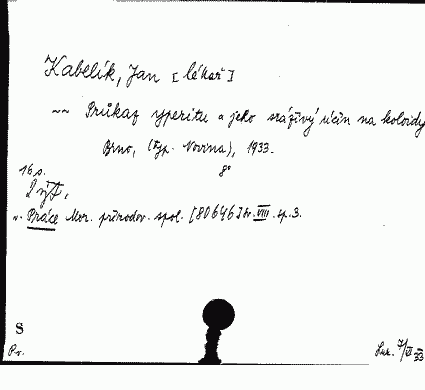 Kabelík, Jan [lékař]
~~ Průkaz yperitu a jeho srážlivý účin na koloidy
Brno, (Typ. Novina), 1933.
8°
16 s.
Výt.
v. Práce Mor. přírodov. spol. [80646] sv. VIII sp. 3.
S
Pr.